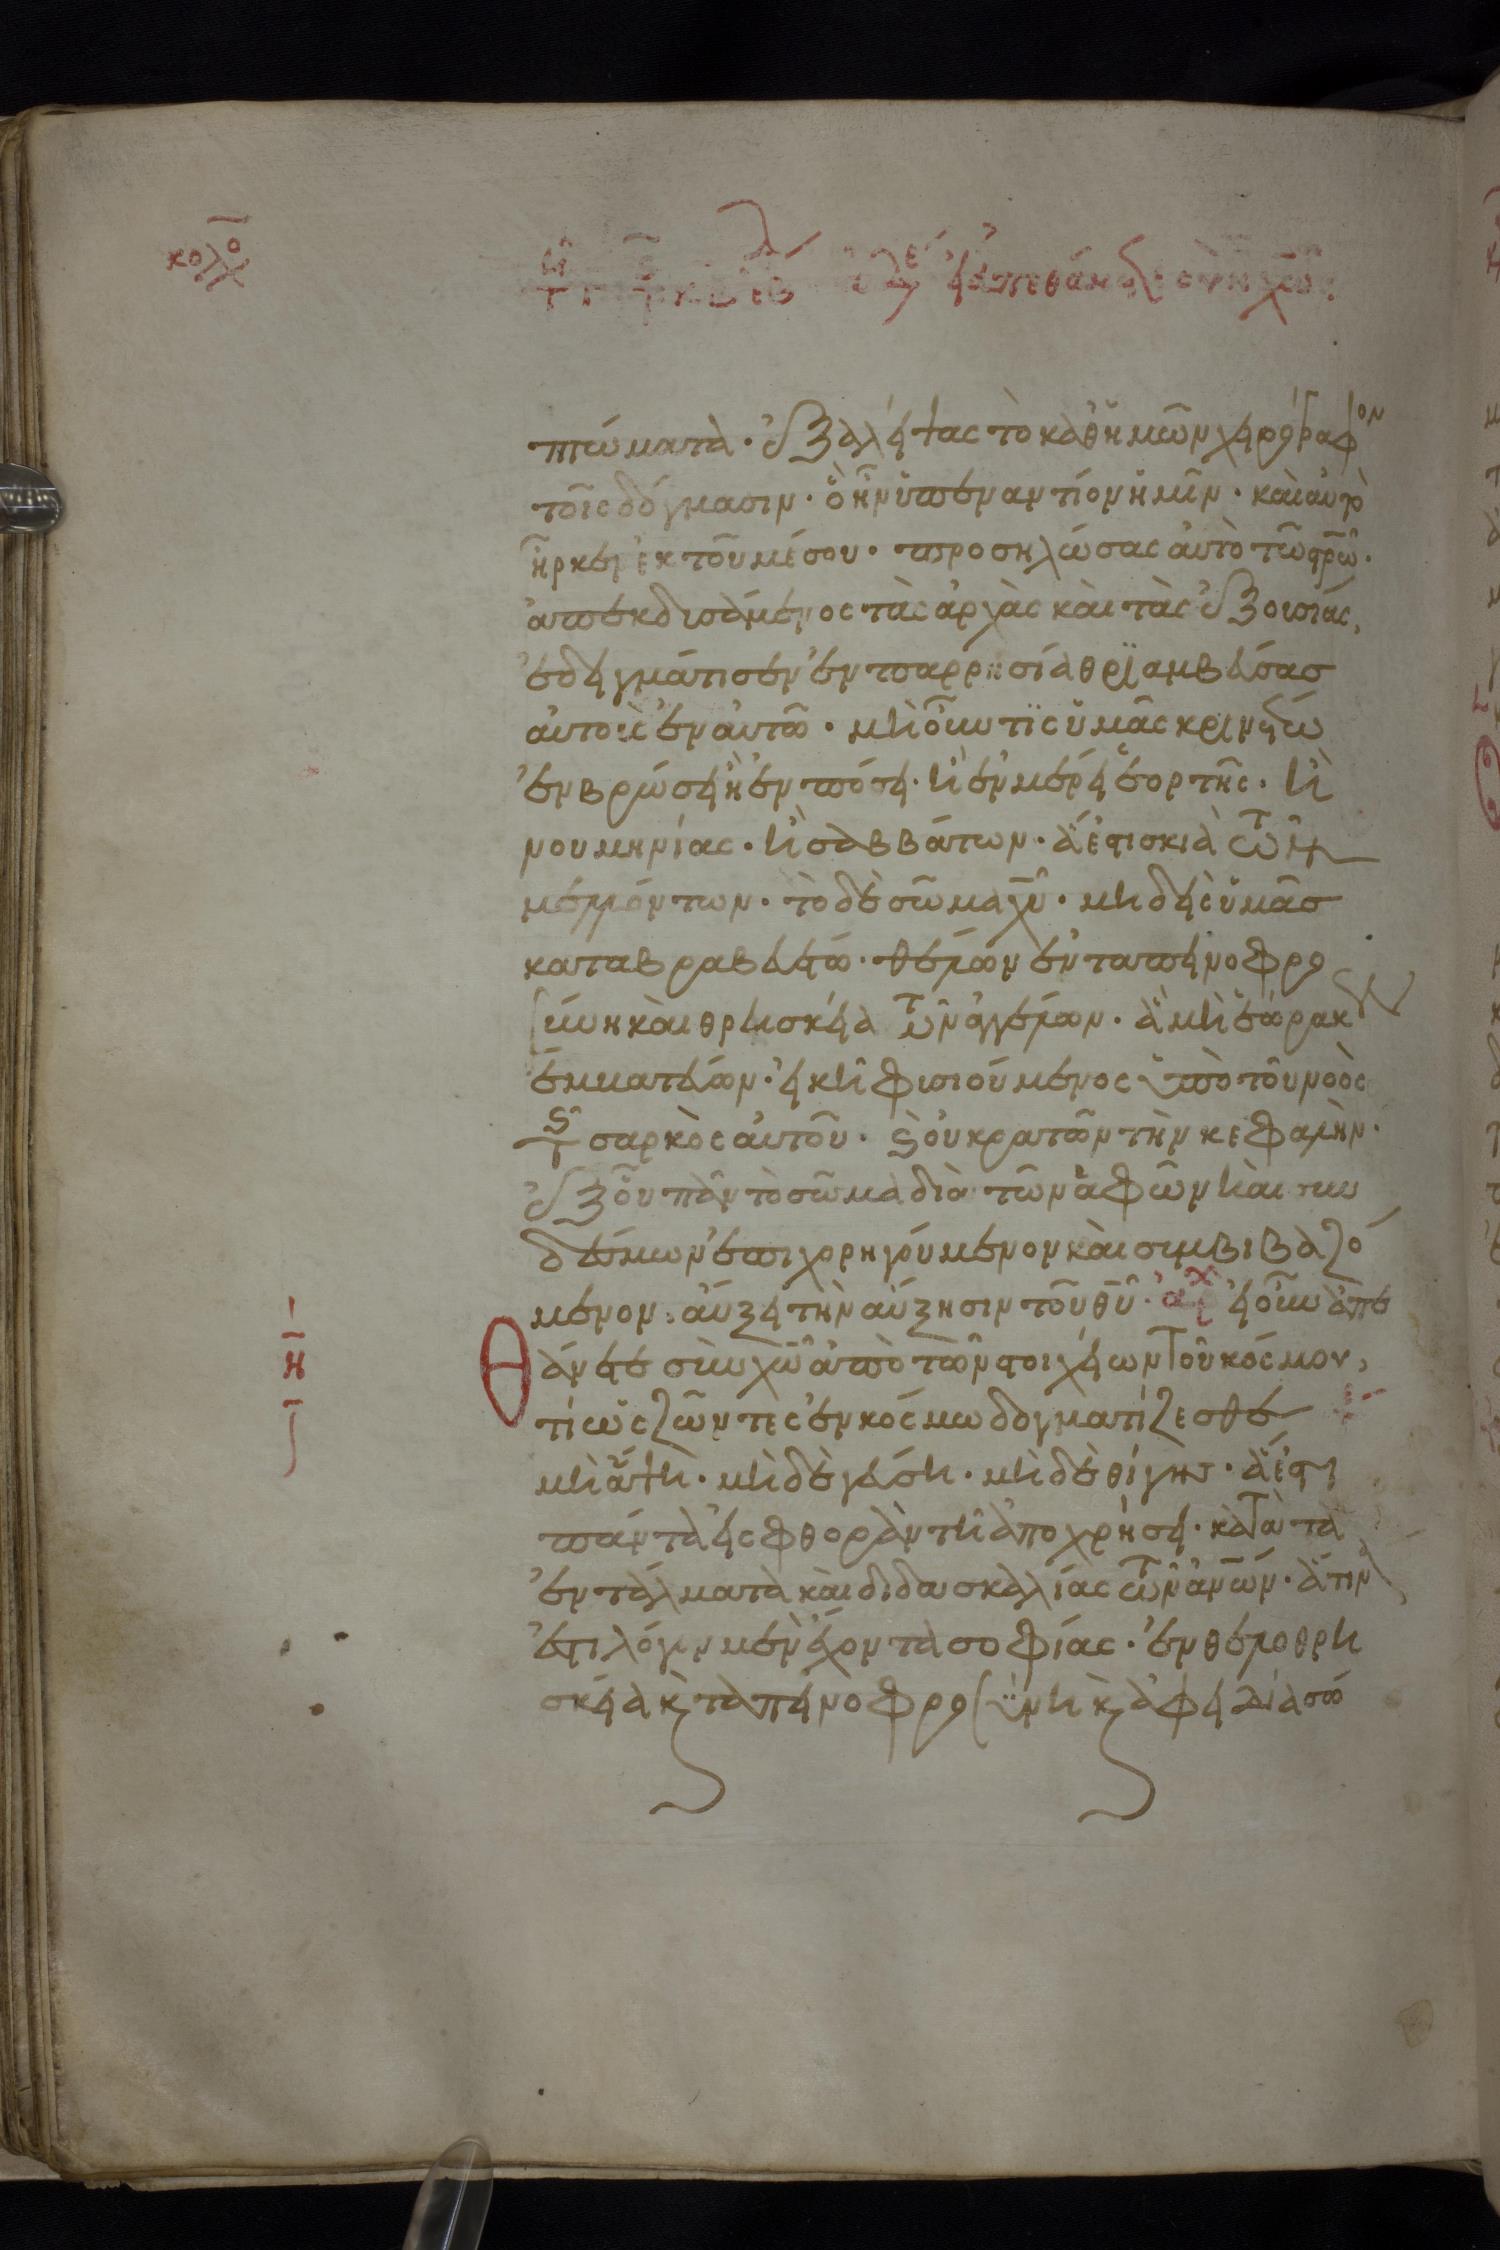 κολο
πτώματα· ἐξαλήψας τὸ καθ ἡμῶν χηρόγραφον
τοῖς δόγμασιν· ὃ ἦν ὑπεναντίον ἡμῖν· καὶ αὐτὸ
ἦρκεν ἐκ τοῦ μέσου· προσηλώσας αὐτὸ τῶ στρῶ·
ἀπεκδισάμενος τὰς ἀρχὰς καὶ τὰς ἐξουσίας,
ἐδηγμάτισεν ἐν παρρησία θριαμβεύσας
αὐτοὺς ἐν αὐτῶ· μὴ οὖν τὶς ὑμᾶς κρινέτω
ἐν βρώση ἢ ἐν πόση· ἢ ἐν μέρη ἑορτῆς· ἢ
νουμηνίας· ἢ σαββάτων· ἅ ἐστι σκιὰ τῶν
μελλόντων· τὸ δὲ σῶμα χυ· μηδὴς ὑμᾶς
καταβραβευέτω· θέλων ἐν ταπηνοφρο
σύνη καὶ θρησκήα τῶν ἀγγέλων· ἃ μὴ ἑώρακεν
ἐμβατεύων· ἠκῆ φισιούμενος ὑπὸ τοῦ νοὸς
τῆς σαρκὸς αὐτοῦ· καὶ οὐ κρατῶν τὴν κεφαλὴν·
ἐξ οὗ πᾶν τὸ σῶμα διὰ τῶν ἁφῶν καὶ συν
δέσμων ἐπιχορηγούμενον καὶ συμβιβαζό
μενον· αὔξη τὴν αὔξησιν τοῦ θυ· ἀρχ ἠ οὖν ἀπε
θάνετε σὺν χω ἀπὸ τῶν στοιχήων τοῦ κόσμου,
τί ὡς ζῶντες ἐν κόσμω δογματίζεσθε
μὴ ἅψη· μηδὲ γεύση· μηδὲ θίγης· ἅ ἐστι
πάντα ἠς φθορὰν τῆ ἀποχρήση· κατὰ τὰ
ἐντάλματα καὶ διδασκαλίας τῶν ανων· ἅτινα
ἐστι λόγον μὲν ἔχοντα σοφίας· ἐν θελοθρη
σκήα κ ταπηνοφροσύνη κ ἀφηδία σώ